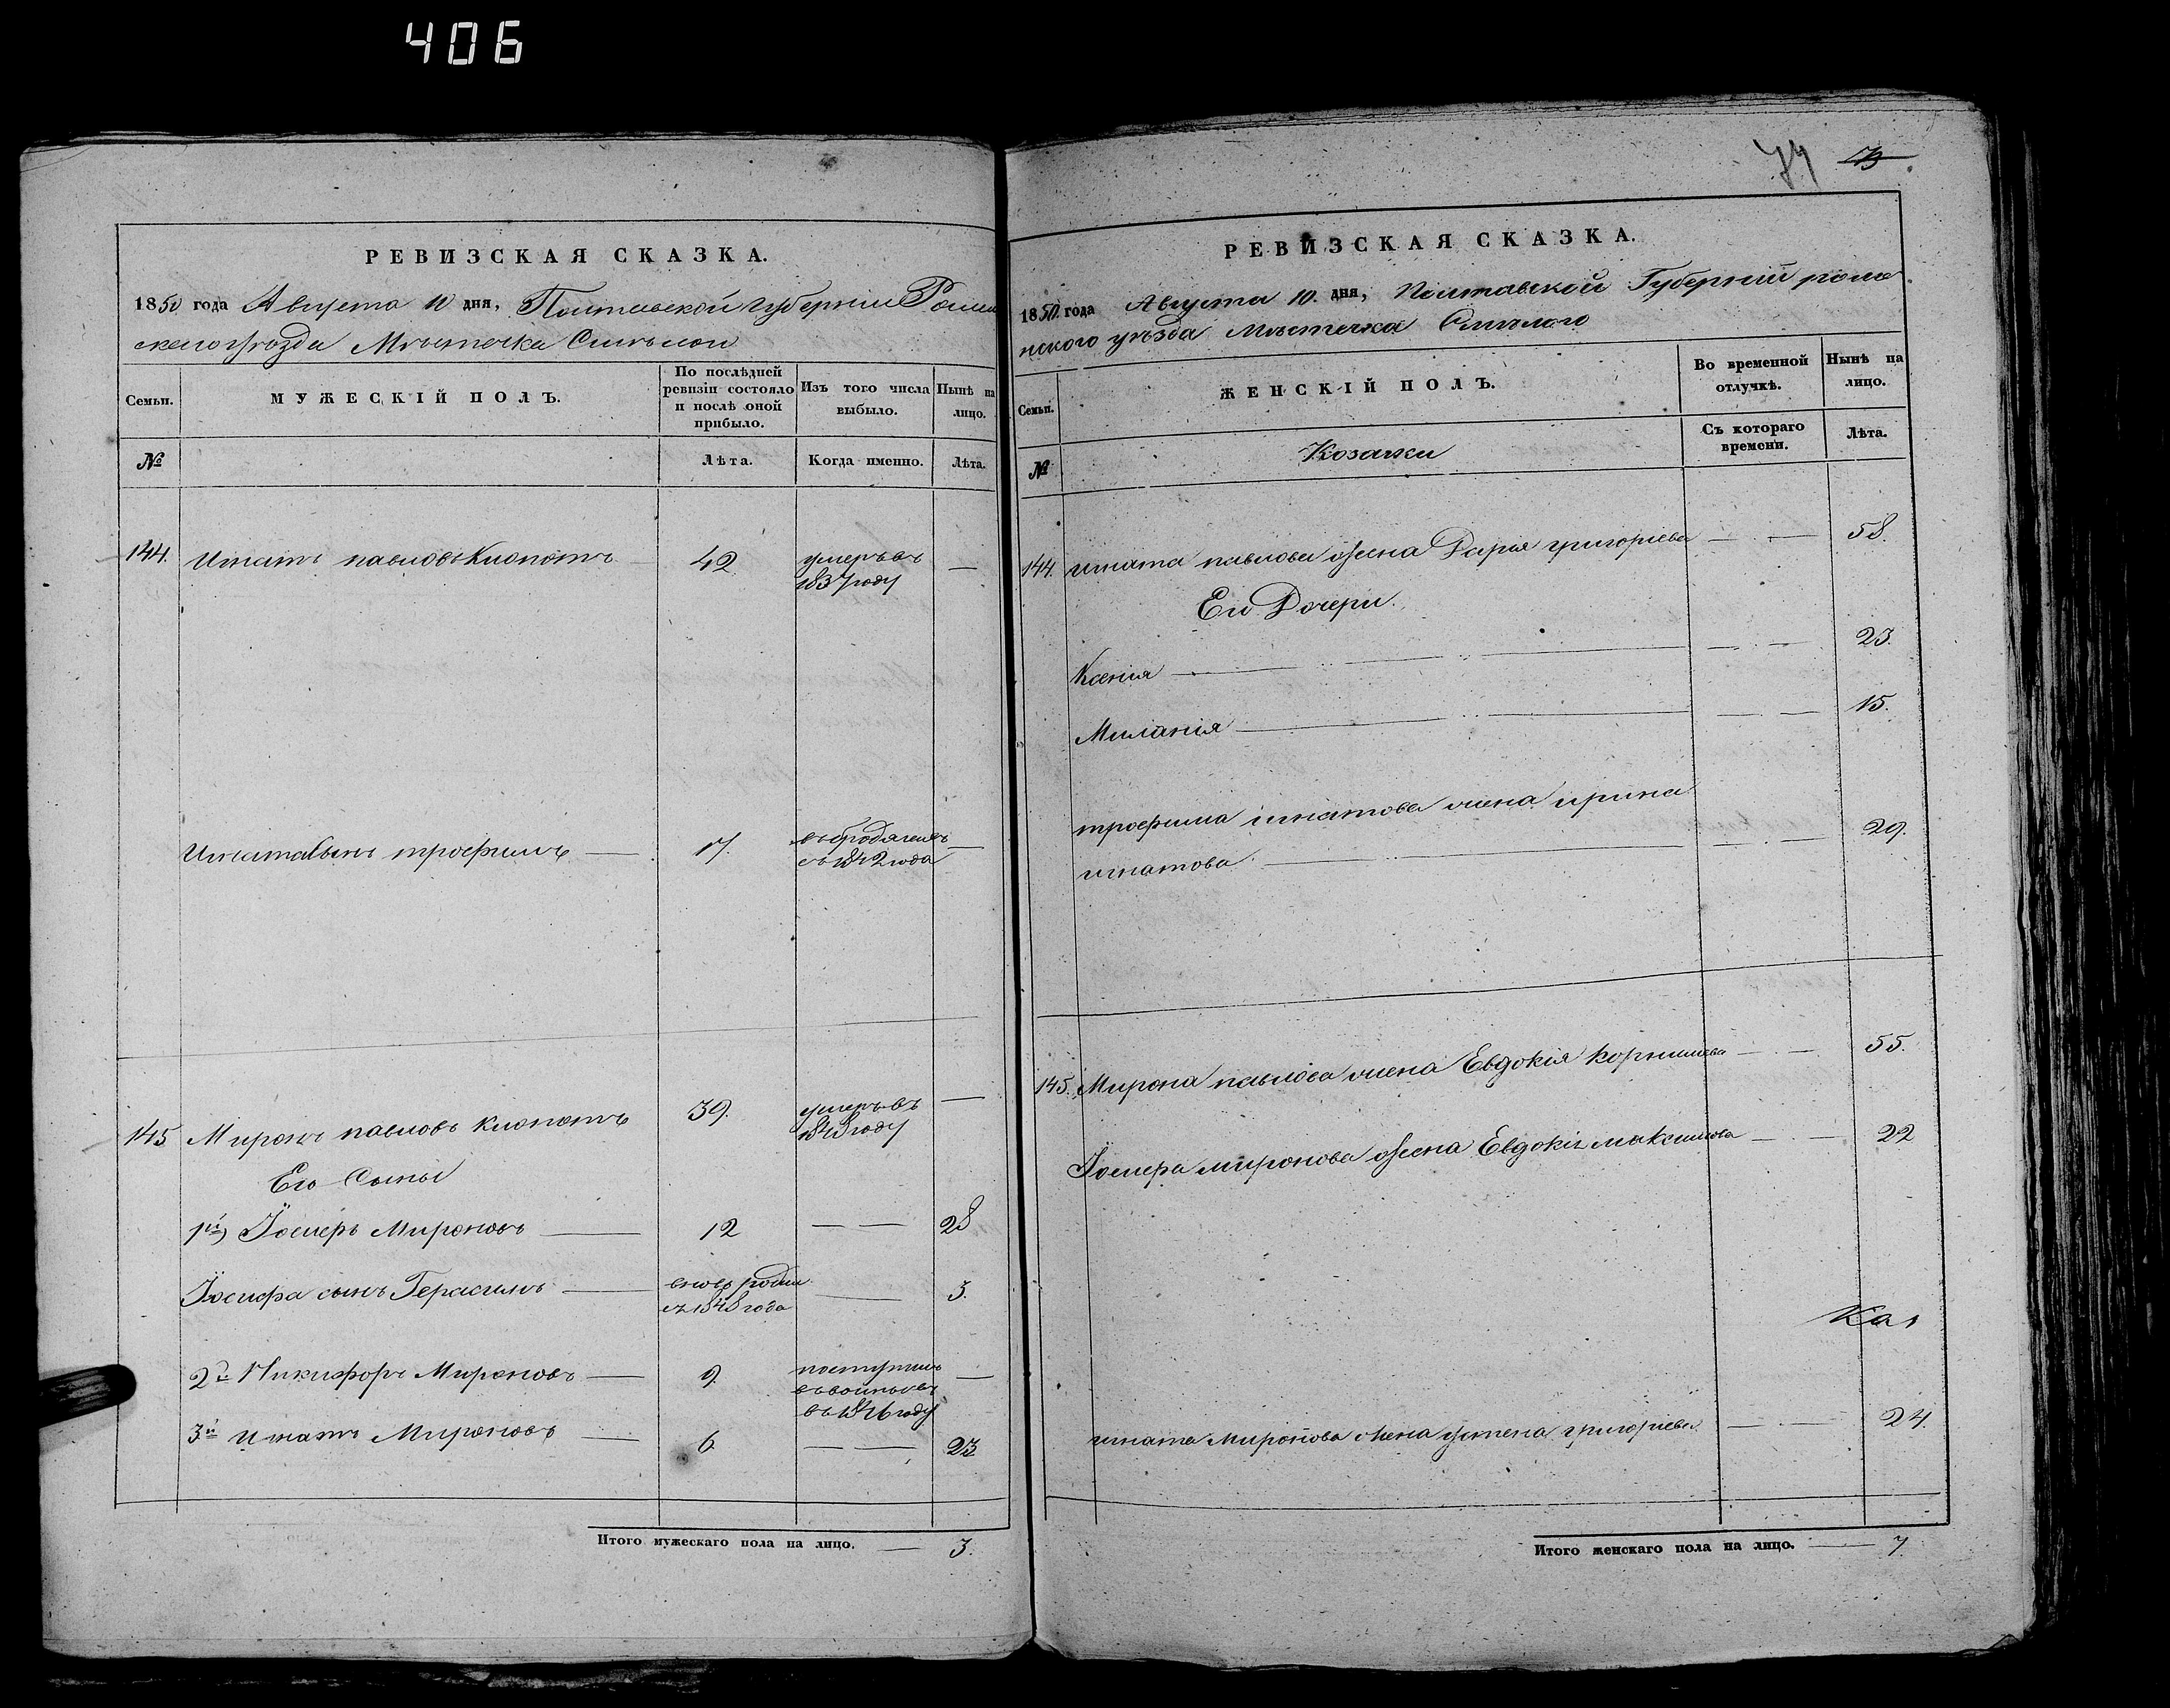 406
РЕВИЗСКАЯ СКАЗКА.
1850 года Августа 10 дня, Полтавской губернии Ромен
скаго уѣзда Мѣстечка Смѣлои
Семьи.
МУЖЕСКІЙ ПОЛЪ.
По послѣдней ревизіи состояло и послѣ оной прибыло.
Изъ того числа выбыло.
Нынѣ на лицо.
№
Лѣта.
Когда именно.
Лѣта.
144. Игнатъ павловъ Клопотъ 42 умеръ въ
1837 году
Игната сынъ трофимъ 17. въ бродягахъ
съ 1842 года
145 Миронъ павловъ клопотъ 39. умеръ въ
1848 году
Его Сыны
1й) Іосифъ Мироновъ 12 28
Іосифа сынъ Герасимъ вновь родил
съ 1848 года 3.
2й Никифоръ Мироновъ 9. поступилъ
въ 1846 году
3й Игнатъ Мироновъ 6 23
Итого мужескаго пола на лицо. 3.
74
РЕВИЗСКАЯ СКАЗКА.
1850 года Августа 10. дня, Полтавской Губерніи роме
нского уѣзда Мѣстечка Смѣлого
Семьи.
ЖЕНСКІЙ ПОЛЪ.
Во временной отлучкѣ.
Нынѣ на лицо.
№
Козачки
Съ котораго времени.
Лѣта.
144. игната павлова жена Дарья григоріева 58.
Его Дочери.
Ксенія 23.
Миланія 15.
трофима игнатова жена ирина
игнатова 29.
145. Мирона павлова жена Евдокія корнилова 55.
Іосифа миронова жена Евдокія максимова 22
игната Миронова жена устена григоріева 24.
Итого женскаго пола на лицо. 7